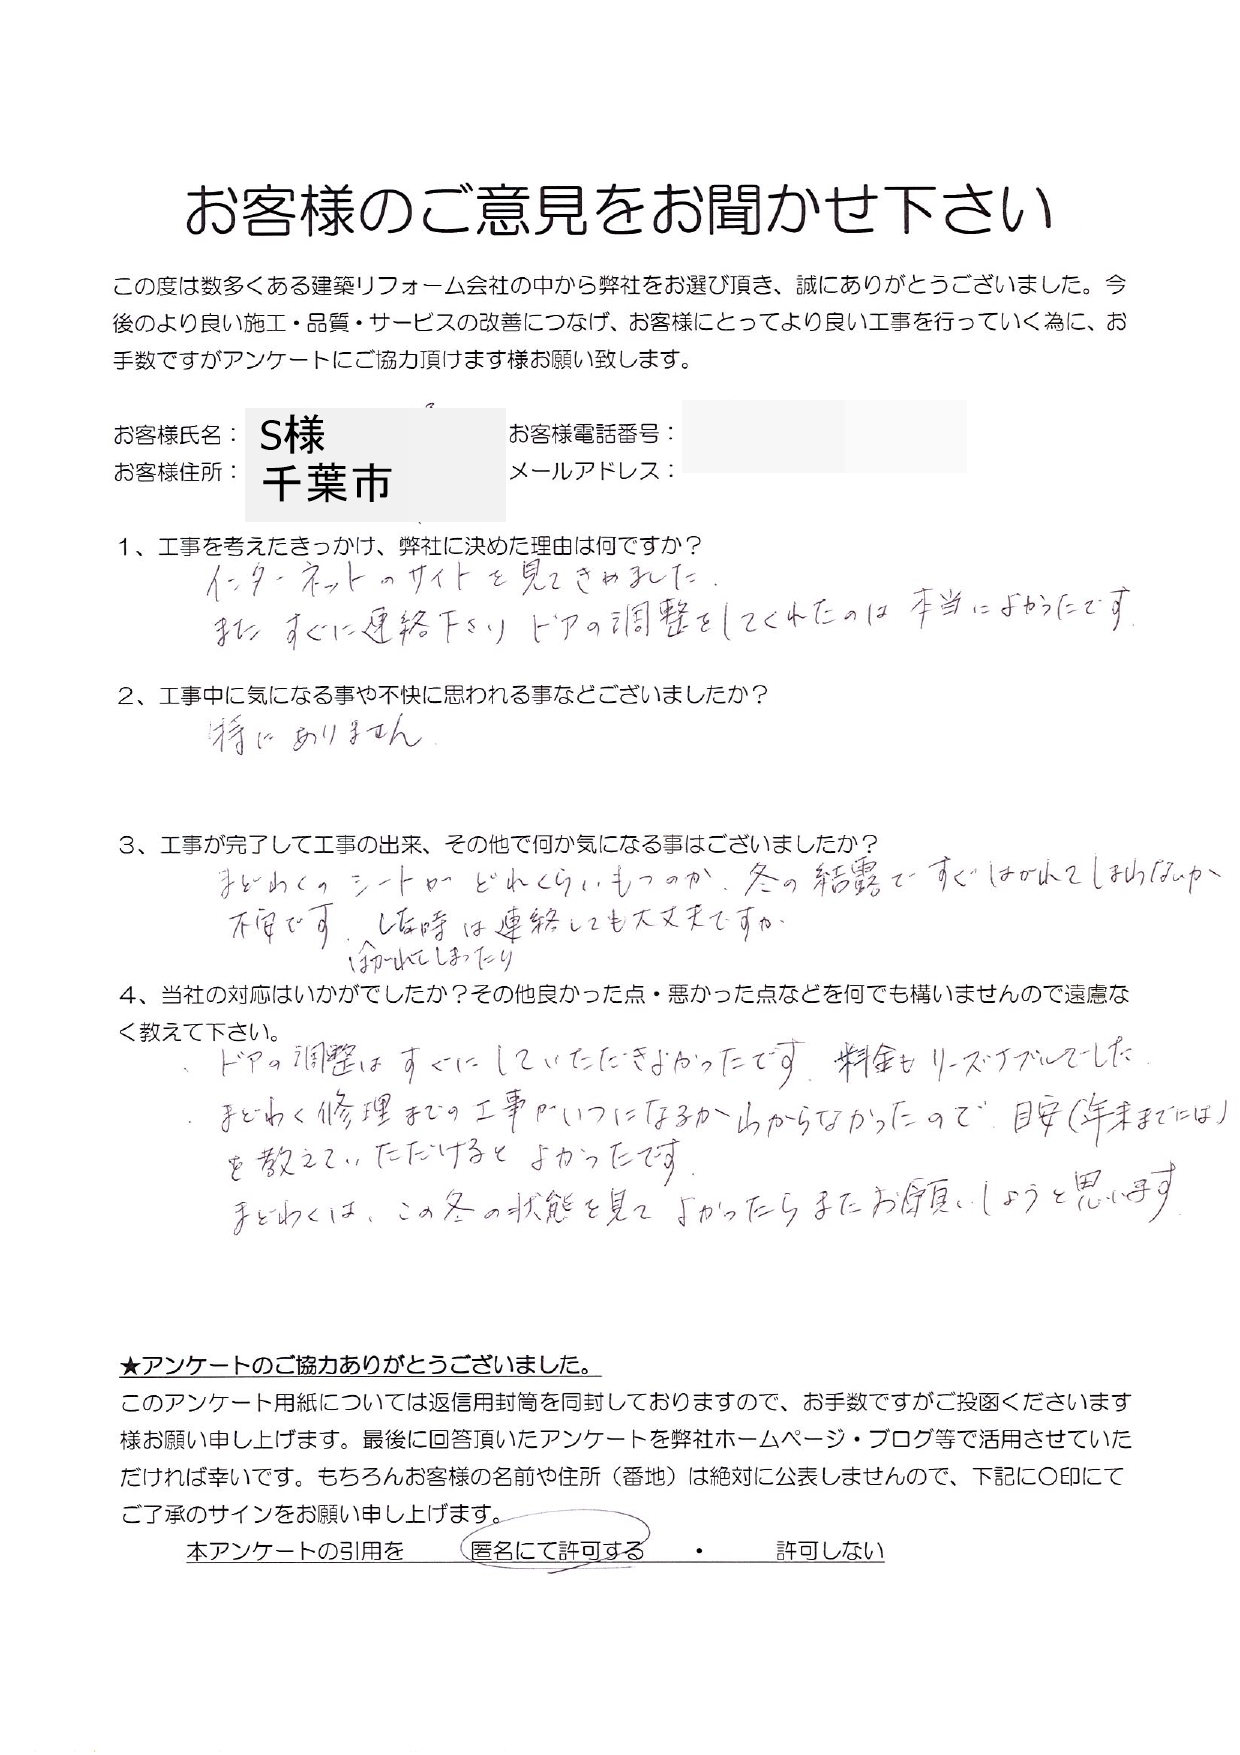 お客様のご意見をお聞かせ下さい
この度は数多くある建築リフォーム会社の中から弊社をお選び頂き、誠にありがとうございました。今
後のより良い施工・品質・サービスの改善につなげ、お客様にとってより良い工事を行っていく為に、お
手数ですがアンケートにご協力頂けます様お願い致します。
お客様氏名： S様 お客様電話番号：
お客様住所： 千葉市 メールアドレス：
１、工事を考えたきっかけ、弊社に決めた理由は何ですか？
インターネットのサイトを見てきめました.
また すぐに連絡下さり ドアの調整をしてくれたのは 本当によかったです.
２、工事中に気になる事や不快に思われる事などございましたか？
特に ありません.
３、工事が完了して工事の出来、その他で何か気になる事はございましたか？
まどわくの シートが どれくらいもつのか、冬の 結露で すぐ はがれてしまわないか
不安です. した時は 連絡しても大丈夫ですか.
はがれてしまったり
４、当社の対応はいかがでしたか？その他良かった点・悪かった点などを何でも構いませんので遠慮な
く教えて下さい。
・ドアの調整は すぐに していただきよかったです. 料金も リーズナブルでした.
・まどわく修理までの 工事がいつになるか わからなかったので 目安(年末までには)
を教えていただけると よかったです.
まどわくは、この冬の状態を見て よかったら またお願いしようと思います.
★アンケートのご協力ありがとうございました。
このアンケート用紙については返信用封筒を同封しておりますので、お手数ですがご投函くださいます
様お願い申し上げます。最後に回答頂いたアンケートを弊社ホームページ・ブログ等で活用させていた
だければ幸いです。もちろんお客様の名前や住所（番地）は絶対に公表しませんので、下記に〇印にて
ご了承のサインをお願い申し上げます。
本アンケートの引用を 匿名にて許可する ・ 許可しない